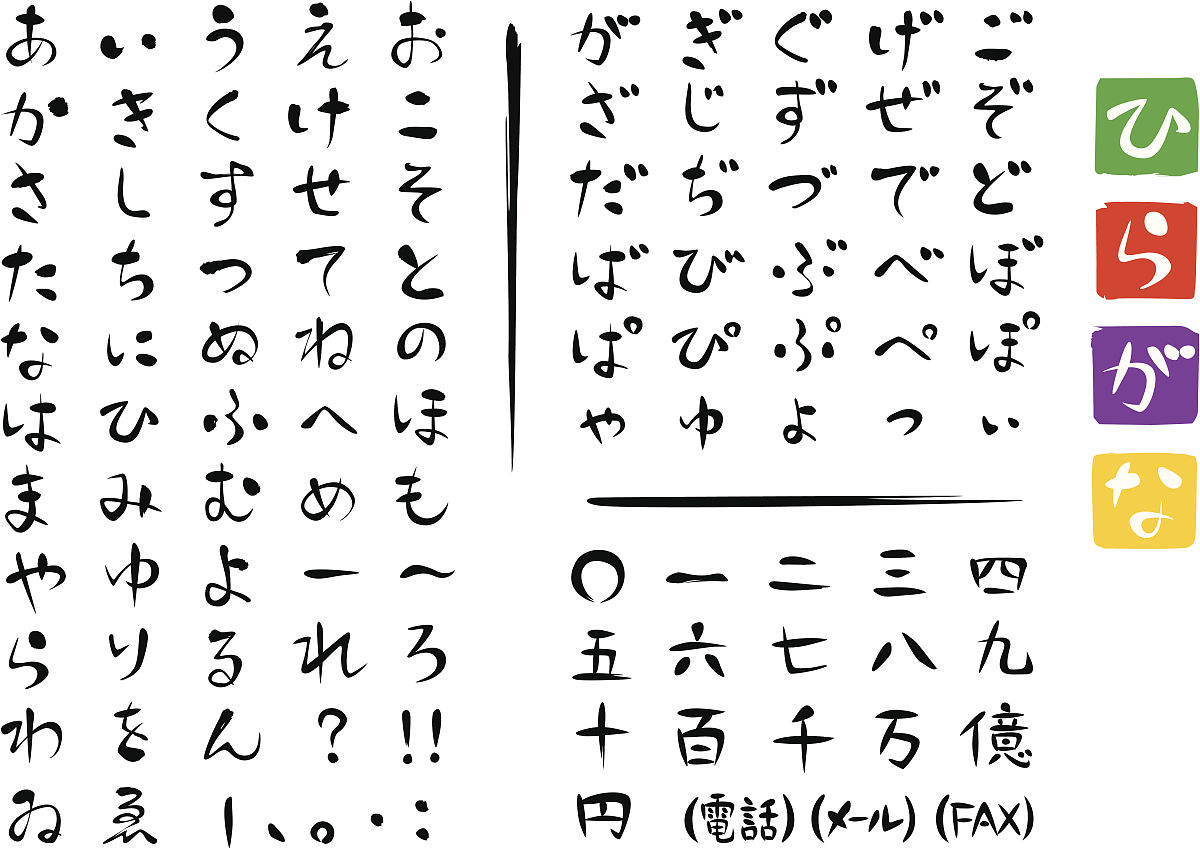 あいうえお
かきくけこ
さしすせそ
たちつてと
なにぬねの
はひふへほ
まみむめも
やゆよー〜
らりるれろ
わをん?!!
ゐゑ|、。・:
がぎぐげご
ざじずぜぞ
だぢづでど
ばびぶべぼ
ぱぴぷぺぽ
ゃゅょっぃ
〇一二三四
五六七八九
十百千万億
円(電話)(メール)(FAX)
ひらがな